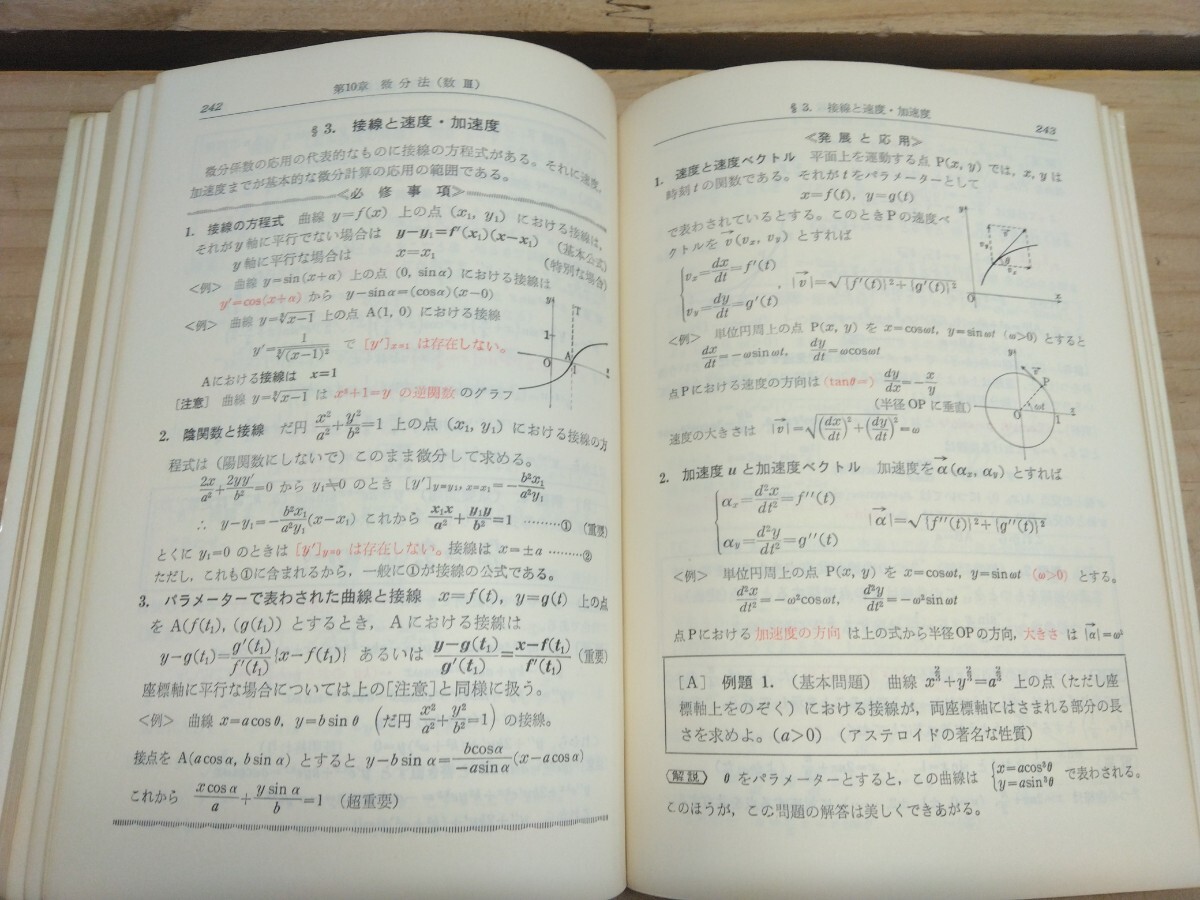 242
第10章 微分法(数 III)
§3. 接線と速度・加速度
微分係数の応用の代表的なものに接線の方程式がある。それに速度,
加速度までが基本的な微分計算の応用の範囲である。
≪必修事項≫
1. 接線の方程式 曲線 y=f(x) 上の点 (x₁, y₁) における接線は,
それがy軸に平行でない場合は y−y₁=f′(x₁)(x−x₁) (基本公式)
y軸に平行な場合は x=x₁ (特別な場合)
<例> 曲線 y=sin(x+α) 上の点 (0, sinα) における接線は
y′=cos(x+α) から y−sinα=(cosα)(x−0)
<例> 曲線 y=∛x−1 上の点 A(1, 0) における接線
y′=1/∛(x−1)² で [y′]x=1 は存在しない。
Aにおける接線は x=1
y
T
1
O
A
1
x
[注意] 曲線 y=∛x−1 は x³+1=y の逆関数のグラフ
2. 陰関数と接線 だ円 x²/a²+y²/b²=1 上の点 (x₁, y₁) における接線の方
程式は(陽関数にしないで)このまま微分して求める。
2x/a²+2yy′/b²=0 から y₁≒0 のとき [y′]y=y₁, x=x₁=−b²x₁/a²y₁
∴ y−y₁=−b²x₁/a²y₁(x−x₁) これから x₁x/a²+y₁y/b²=1 ………① (重要)
とくに y₁=0 のときは [y′]y=0 は存在しない。接線は x=±a ………②
ただし, これも①に含まれるから, 一般に①が接線の公式である。
3. パラメーターで表わされた曲線と接線 x=f(t), y=g(t) 上の点
を A(f(t₁), (g(t₁)) とするとき, A における接線は
y−g(t₁)=g′(t₁)/f′(t₁){x−f(t₁)} あるいは y−g(t₁)/g′(t₁)=x−f(t₁)/f′(t₁) (重要)
座標軸に平行な場合については上の[注意]と同様に扱う。
<例> 曲線 x=acosθ, y=bsinθ (だ円 x²/a²+y²/b²=1) の接線。
接点を A(acosα, bsinα) とすると y−bsinα=bcosα/−asinα(x−acosα)
これから xcosα/a+ysinα/b=1 (超重要)
§3. 接線と速度・加速度
243
≪発展と応用≫
1. 速度と速度ベクトル 平面上を運動する点 P(x, y) では, x, y は
時刻tの関数である。それがtをパラメーターとして
x=f(t), y=g(t)
で表わされているとする。このときPの速度ベ
クトルを v⃗(vx, vy) とすれば
{vx=dx/dt=f′(t)
vy=dy/dt=g′(t) , |v⃗|=√{f′(t)}²+{g′(t)}²
y
v⃗
vy
θ
vx
O
x
<例> 単位円周上の点 P(x, y) を x=cosωt, y=sinωt (ω>0) とすると
dx/dt=−ωsinωt, dy/dt=ωcosωt
点Pにおける速度の方向は (tanθ=) dy/dx=−x/y
(半径 OP に垂直)
速度の大きさは |v⃗|=√(dx/dt)²+(dy/dt)²=ω
y
v⃗
P
O
ωt
1
x
2. 加速度 u と加速度ベクトル 加速度を α⃗(αx, αy) とすれば
{αx=d²x/dt²=f″(t)
αy=d²y/dt²=g″(t) |α⃗|=√{f″(t)}²+{g″(t)}²
<例> 単位円周上の点 P(x, y) を x=cosωt, y=sinωt (ω>0) とする。
d²x/dt²=−ω²cosωt, d²y/dt²=−ω²sinωt
点Pにおける 加速度の方向 は上の式から半径OPの方向, 大きさ は |α⃗|=ω²
[A] 例題 1. (基本問題) 曲線 x^(2/3)+y^(2/3)=a^(2/3) 上の点(ただし座
標軸上をのぞく)における接線が, 両座標軸にはさまれる部分の長
さを求めよ。(a>0) (アステロイドの著名な性質)
解説 θをパラメーターとすると, この曲線は {x=acos³θ y=asin³θ で表わされる。
このほうが, この問題の解答は美しくできあがる。